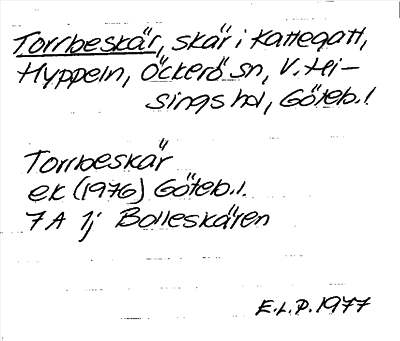 Torrbeskär, skär i Kattegatt,
Hyppeln, Öckerö sn, V. Hi-
sings hd, Göteb. l.
Torrbeskär
ek (1976) Göteb. l.
7A 1j Bolleskären
E.L.P. 1977